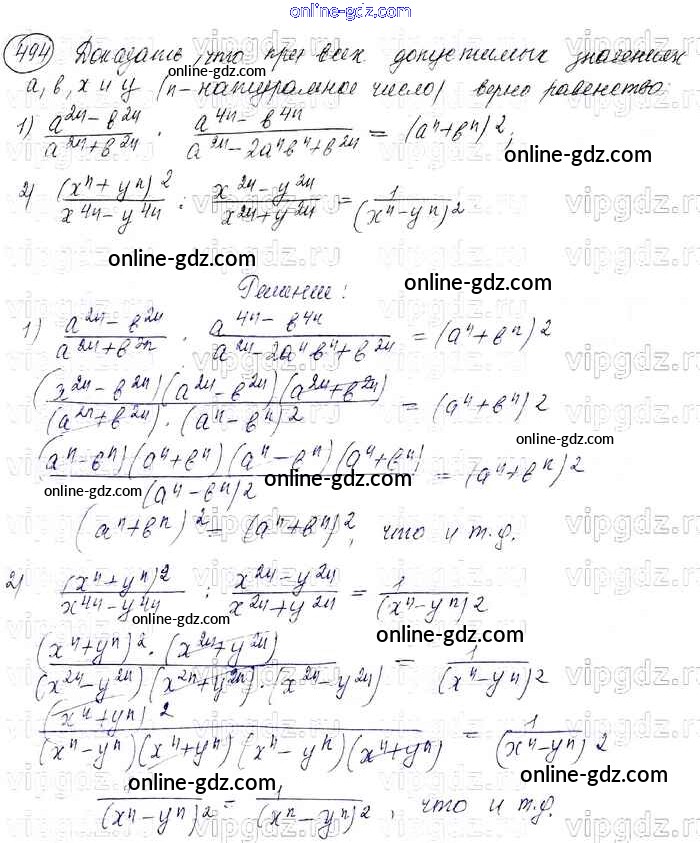 online-gdz.com
494 Доказать, что при всех допустимых значениях
a, b, x и y (n - натуральное число) верно равенство:
1) (a^2n - b^2n)/(a^2n + b^2n) · (a^4n - b^4n)/(a^2n - 2a^n b^n + b^2n) = (a^n + b^n)^2;
online-gdz.com
2) (x^n + y^n)^2/(x^4n - y^4n) : (x^2n - y^2n)/(x^2n + y^2n) = 1/(x^n - y^n)^2
online-gdz.com
online-gdz.com
Решение:
1) (a^2n - b^2n)/(a^2n + b^2n) · (a^4n - b^4n)/(a^2n - 2a^n b^n + b^2n) = (a^n + b^n)^2
(a^2n - b^2n)(a^2n - b^2n)(a^2n + b^2n)/((a^2n + b^2n) · (a^n - b^n)^2) = (a^n + b^n)^2
online-gdz.com
(a^n - b^n)(a^n + b^n)(a^n - b^n)(a^n + b^n)/(a^n - b^n)^2 = (a^n + b^n)^2
online-gdz.com
online-gdz.com
(a^n + b^n)^2 = (a^n + b^n)^2, что и т.д.
2) (x^n + y^n)^2/(x^4n - y^4n) : (x^2n - y^2n)/(x^2n + y^2n) = 1/(x^n - y^n)^2
online-gdz.com
online-gdz.com
(x^n + y^n)^2 · (x^2n + y^2n)/((x^2n - y^2n)(x^2n + y^2n) · (x^2n - y^2n)) = 1/(x^n - y^n)^2
(x^n + y^n)^2/((x^n - y^n)(x^n + y^n)(x^n - y^n)(x^n + y^n)) = 1/(x^n - y^n)^2
online-gdz.com
online-gdz.com
1/(x^n - y^n)^2 = 1/(x^n - y^n)^2, что и т.д.
online-gdz.com
vipgdz.ru